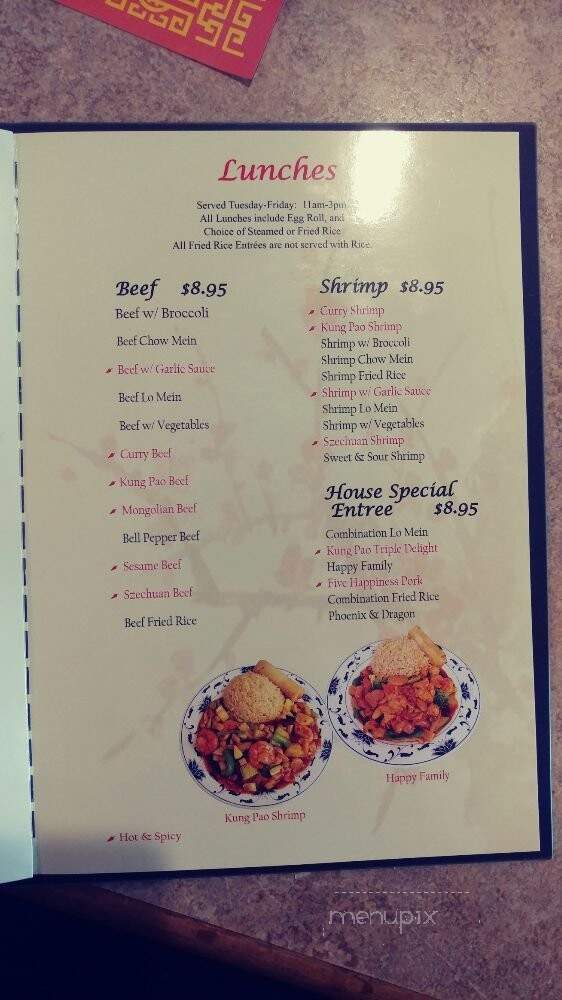 Lunches
Served Tuesday-Friday: 11am-3pm
All Lunches include Egg Roll, and
Choice of Steamed or Fried Rice
All Fried Rice Entrées are not served with Rice.
Beef $8.95
Beef w/ Broccoli
Beef Chow Mein
Beef w/ Garlic Sauce
Beef Lo Mein
Beef w/ Vegetables
Curry Beef
Kung Pao Beef
Mongolian Beef
Bell Pepper Beef
Sesame Beef
Szechuan Beef
Beef Fried Rice
Shrimp $8.95
Curry Shrimp
Kung Pao Shrimp
Shrimp w/ Broccoli
Shrimp Chow Mein
Shrimp Fried Rice
Shrimp w/ Garlic Sauce
Shrimp Lo Mein
Shrimp w/ Vegetables
Szechuan Shrimp
Sweet & Sour Shrimp
House Special
Entree $8.95
Combination Lo Mein
Kung Pao Triple Delight
Happy Family
Five Happiness Pork
Combination Fried Rice
Phoenix & Dragon
Happy Family
Kung Pao Shrimp
Hot & Spicy
menupix